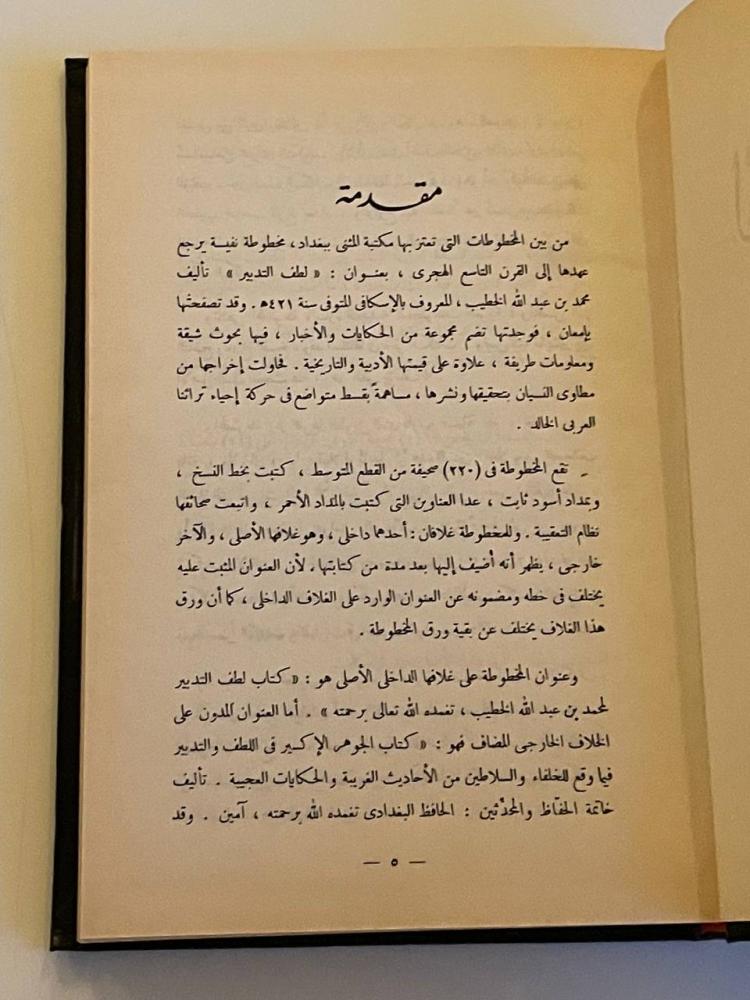 مقدمة
من بين المخطوطات التى تعتز بها مكتبة المثنى ببغداد، مخطوطة نفيسة يرجع
عهدها إلى القرن التاسع الهجرى ، بعنوان : « لطف التدبير » تأليف
محمد بن عبد الله الخطيب ، المعروف بالإسكافى المتوفى سنة ٤٢١ھ . وقد تصفحتها
بإمعان ، فوجدتها تضم مجموعة من الحكايات والأخبار ، فيها بحوث شيقة
ومعلومات طريفة ، علاوة على قيمتها الأدبية والتاريخية . فحاولت إخراجها من
مطاوى النسيان بتحقيقها ونشرها ، مساهمةً بقسط متواضع فى حركة إحياء تراثنا
العربى الخالد .
ـ تقع المخطوطة فى (٢٢٠) صحيفة من القطع المتوسط ، كتبت بخط النسخ ،
وبمداد أسود ثابت ، عدا العناوين التى كتبت بالمداد الأحمر ، واتبعت صحائفها
نظام التعقيبة . وللمخطوطة غلافان : أحدهما داخلى ، وهو غلافها الأصلى ، والآخر
خارجى ، يظهر أنه أضيف إليها بعد مدة من كتابتها ، لأن العنوان المثبت عليه
يختلف فى خطه ومضمونه عن العنوان الوارد على الغلاف الداخلى ، كما أن ورق
هذا الغلاف يختلف عن بقية ورق المخطوطة .
وعنوان المخطوطة على غلافها الداخلى الأصلى هو : « كتاب لطف التدبير
لمحمد بن عبد الله الخطيب ، تغمده الله تعالى برحمته » . أما العنوان المدون على
الخلاف الخارجى المضاف فهو : « كتاب الجوهر الإكسير فى اللطف والتدبير
فيما وقع للخلفاء والسلاطين من الأحاديث الغريبة والحكايات العجيبة . تأليف
خاتمة الحفّاظ والمحدّثين : الحافظ البغدادى تغمده الله برحمته ، آمين . وقد
— ٥ —